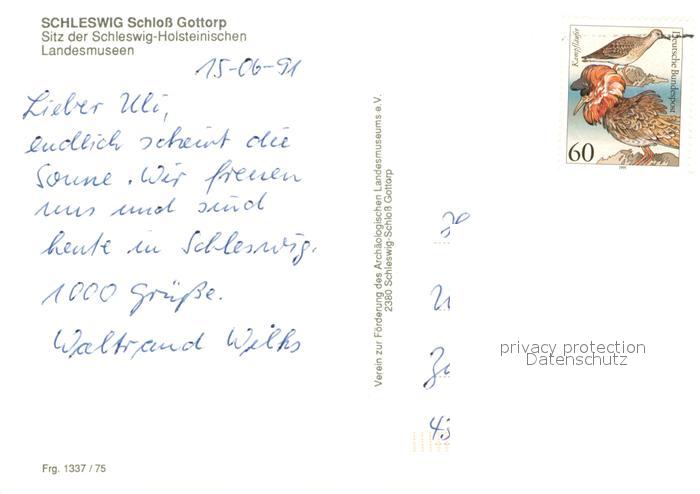 SCHLESWIG Schloß Gottorp
Sitz der Schleswig-Holsteinischen
Landesmuseen
15-06-91
Lieber Uli,
endlich scheint die
Sonne. Wir freuen
uns und sind
heute in Schleswig.
1000 Grüße.
Waltraud Wilks
Frg. 1337 / 75
Verein zur Förderung des Archäologischen Landesmuseums e.V.
2380 Schleswig-Schloß Gottorp
Kampfläufer
Deutsche Bundespost
60
1991
43
privacy protection
Datenschutz